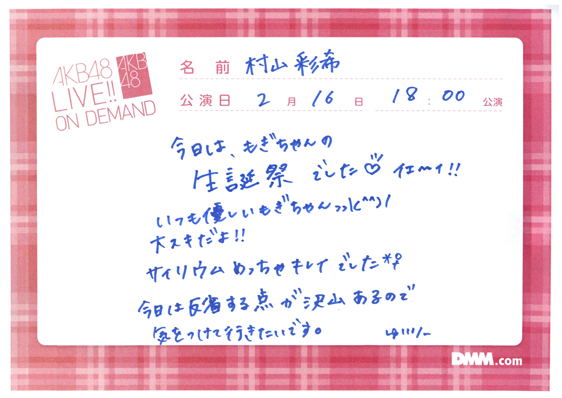 AKB48
LIVE!!
ON DEMAND
AKB
48
名 前 村山 彩希
公演日 2 月 16 日 18:00 公演
今日は、もぎちゃんの
生誕祭 でした♡ イェーイ!!
いつも優しいもぎちゃん>>|(^^)/
大スキだよ!!
サイリウム めっちゃキレイ でした*♀
今日は反省する点が沢山あるので
気をつけて行きたいです。
DMM.com